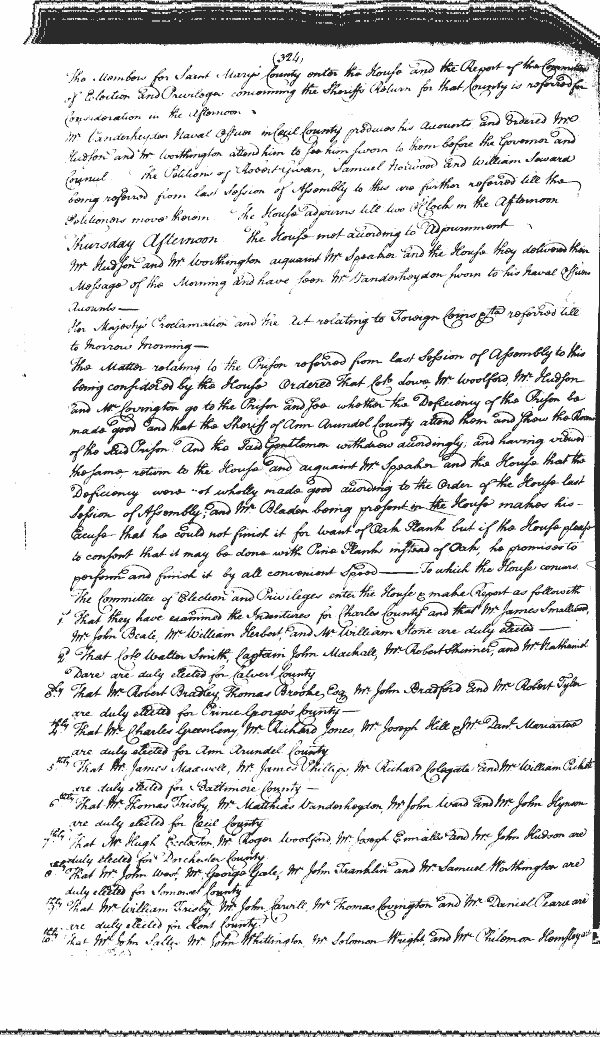 (324)
The Members for Saint Marys County enter the House and the Report of the Committee
of Election and Privileges concerning the Sheriffs Return for that County is referred for
Consideration in the Afternoon
Mr Vanderheyden Naval Officer in Cecil County produces his Accounts and Ordered Mr
Hudson and Mr Worthington attend him to see him sworn to them before the Governor and
Council the Petitions of Robert Gwan, Samuel Norwood and William Seward
being referred from last Session of Assembly to this are further referred till the
Petitioners move therein The House adjourns till two O Clock in the Afternoon
Thursday Afternoon the House met according to Adjournment
Mr Hudson and Mr Worthington acquaint Mr Speaker and the House they delivered their
Message of the Morning and have seen Mr Vanderheyden sworn to his Naval Officers
Accounts —
Her Majestys Proclamation and the Act relating to Foreign Coins &ta referred till
to Morrow Morning —
The Matter relating to the Prison referred from last Session of Assembly to this
being considered by the House Ordered That Colo Lowe Mr Woolford, Mr Hudson
and Mr Covington go to the Prison and see whether the Deficiency of the Prison be
made good and that the Sheriff of Ann Arundel County attend them and shew the Rooms
of the said Prison And the said Gentlemen withdrew accordingly, and having viewed
the same return to the House and acquaint Mr Speaker and the House that the
Deficiency were not wholly made good according to the Order of the House last
Session of Assembly, and Mr Bladen being present in the House makes his
Excuse that he could not finish it for want of Oak Plank but if the House please
to consent that it may be done with Pine Plank instead of Oak, he promises to
perform and finish it by all convenient Speed — To which the House concurs.
The Committee of Election and Privileges enter the House & make Report as followeth
1st That they have examined the Indentures for Charles County and that Mr James Smallwood,
Mr John Beale, Mr William Herbert and Mr William Stone are duly elected —
2d That Colo Walter Smith, Captain John Mackall, Mr Robert Skinner, and Mr Nathaniel
Dare are duly elected for Calvert County
3dly That Mr Robert Bradley, Thomas Brooke, Esq Mr John Bradford and Mr Robert Tyler
are duly elected for Prince Georges County —
4thly That Mr Charles Greenbery, Mr Richard Jones, Mr Joseph Hill & Mr Danl Mariartee
are duly elected for Ann Arundel County
5thly That Mr James Maxwell, Mr James Phillips, Mr Richard Colegate and Mr William Pickett
are duly elected for Baltimore County —
6thly That Mr Thomas Frisby, Mr Matthias Vanderheyden, Mr John Ward and Mr John Hynson
are duly elected for Cecil County
7thly That Mr Hugh Eccleston Mr Roger Woolford, Mr Joseph Ennalls and Mr John Hudson are
duly elected for Dorchester County
8thly That Mr John West, Mr George Gale, Mr John Franklin and Mr Samuel Worthington are
duly elected for Somerset County
9thly That Mr William Frisby, Mr John Carvill, Mr Thomas Covington and Mr Daniel Pearce are
are duly elected for Kent County
10thly That Mr John Salter Mr John Whittington, Mr Solomon Wright, and Mr Philemon Hemsley are